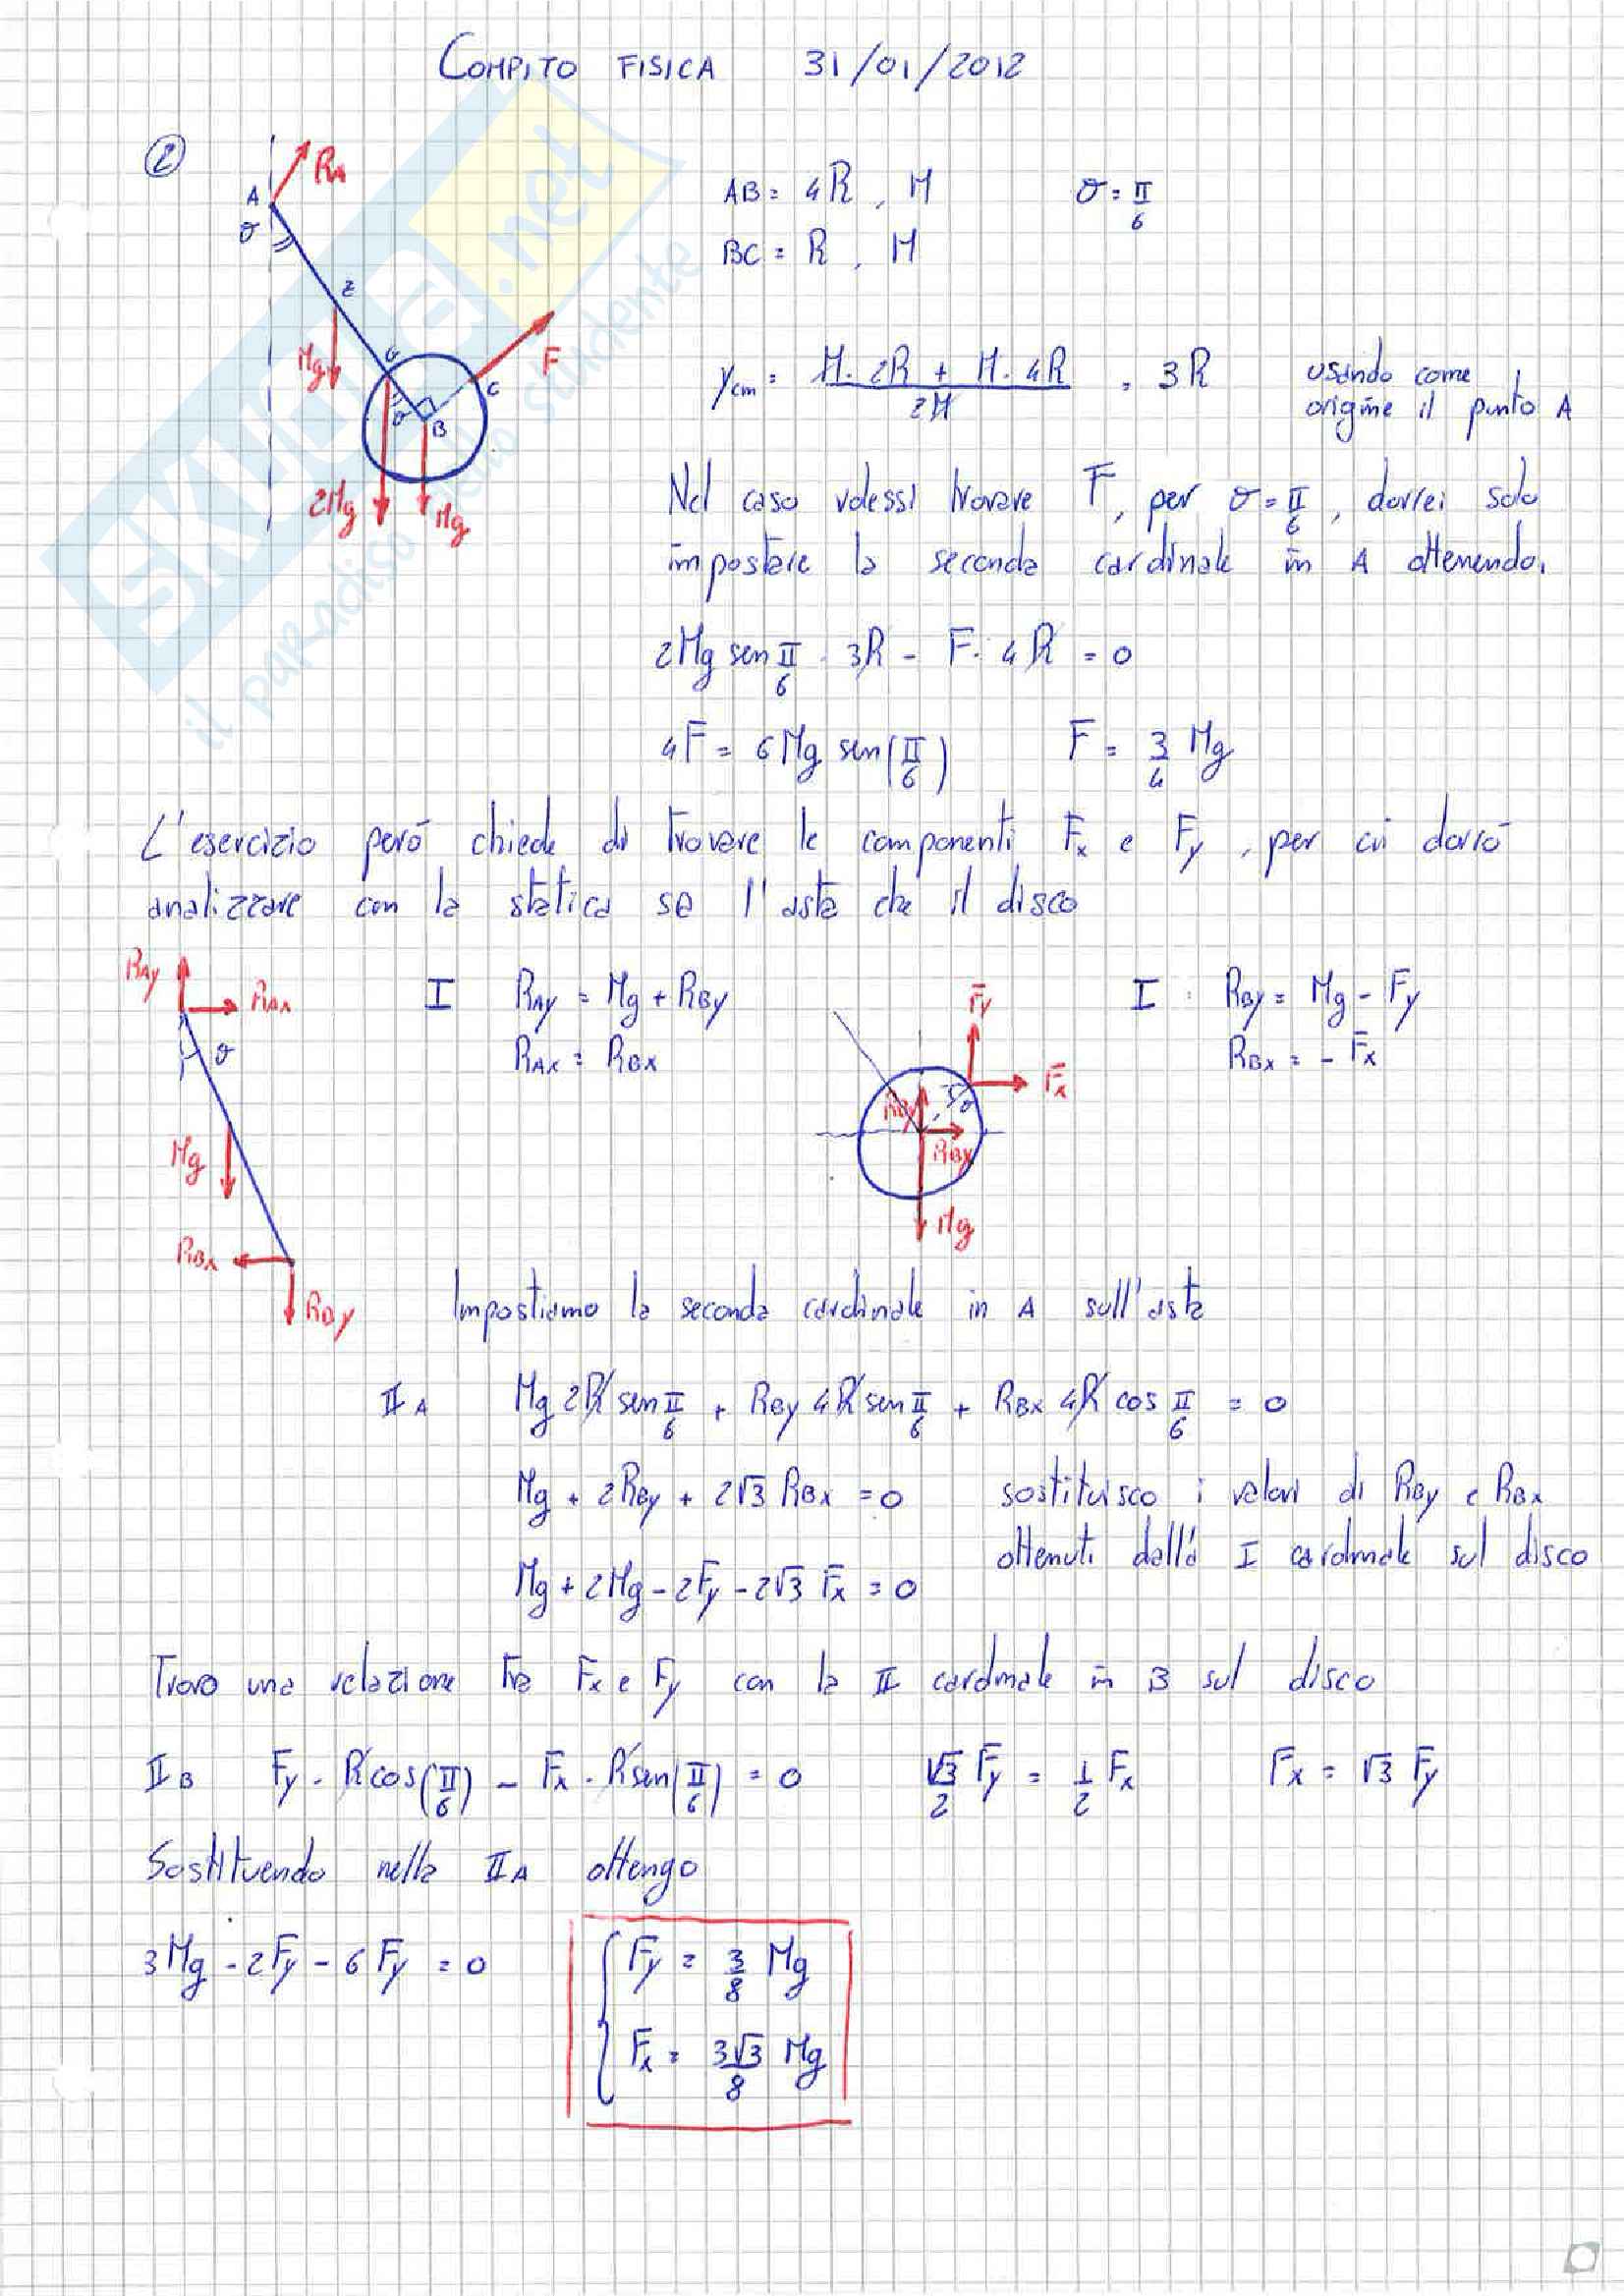 COMPITO FISICA 31/01/2012
②
RA
A
ϑ
AB = 4R , M ϑ = π/6
BC = R , M
z
Mg
G
F
C
ϑ
B
2Mg
Mg
ycm = (M·2R + M·4R)/2M = 3R usando come
origine il punto A
Nel caso volessi trovare F, per ϑ = π/6, dovrei solo
impostare la seconda cardinale in A ottenendo.
2Mg sen π/6 · 3R - F · 4R = 0
4F = 6Mg sen(π/6) F = 3/4 Mg
L'esercizio però chiede di trovare le componenti Fx e Fy, per cui dovrò
analizzare con la statica sia l'asta che il disco
RAy
RAx
ϑ
Mg
RBx
RBy
I RAy = Mg + RBy
RAx = RBx
Fy
Fx
RBy
ϑ
RBx
Mg
I : RBy = Mg - Fy
RBx = - Fx
Impostiamo la seconda cardinale in A sull'asta
IIA Mg 2R sen π/6 + RBy 4R sen π/6 + RBx 4R cos π/6 = 0
Mg + 2RBy + 2√3 RBx = 0 sostituisco i valori di RBy e RBx
ottenuti dalla I cardinale sul disco
Mg + 2Mg - 2Fy - 2√3 Fx = 0
Trovo una relazione tra Fx e Fy con la II cardinale in B sul disco
IIB Fy · R cos(π/6) - Fx · R sen(π/6) = 0 √3/2 Fy = 1/2 Fx Fx = √3 Fy
Sostituendo nella IIA ottengo
3Mg - 2Fy - 6Fy = 0
Fy = 3/8 Mg
Fx = 3√3/8 Mg
SKUOLA.net
il paradiso dello studente